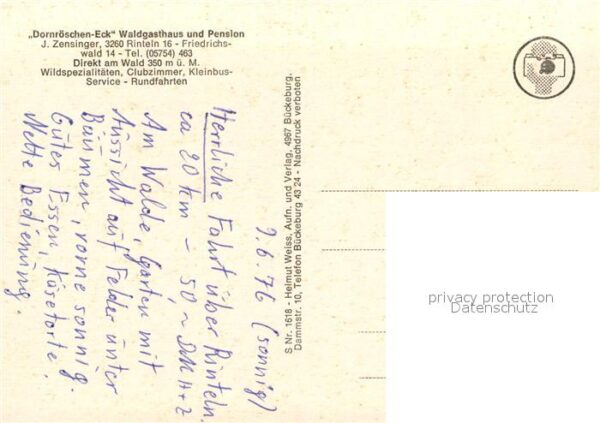 „Dornröschen-Eck" Waldgasthaus und Pension
J. Zensinger, 3260 Rinteln 16 - Friedrichs-
wald 14 - Tel. (05754) 463
Direkt am Wald 350 m ü. M.
Wildspezialitäten, Clubzimmer, Kleinbus-
Service - Rundfahrten
9.6.76 (sonnig)
Herrliche Fahrt über Rinteln.
ca 20 km - 50,~ DM H+Z
Am Walde, Garten mit
Aussicht auf Felder unter
Bäumen, vorne sonnig.
Gutes Essen, Käsetorte.
Nette Bedienung.
S Nr. 1618 - Helmut Weiss, Aufn. und Verlag, 4967 Bückeburg,
Dammstr. 10, Telefon Bückeburg 43 24 - Nachdruck verboten
privacy protection
Datenschutz